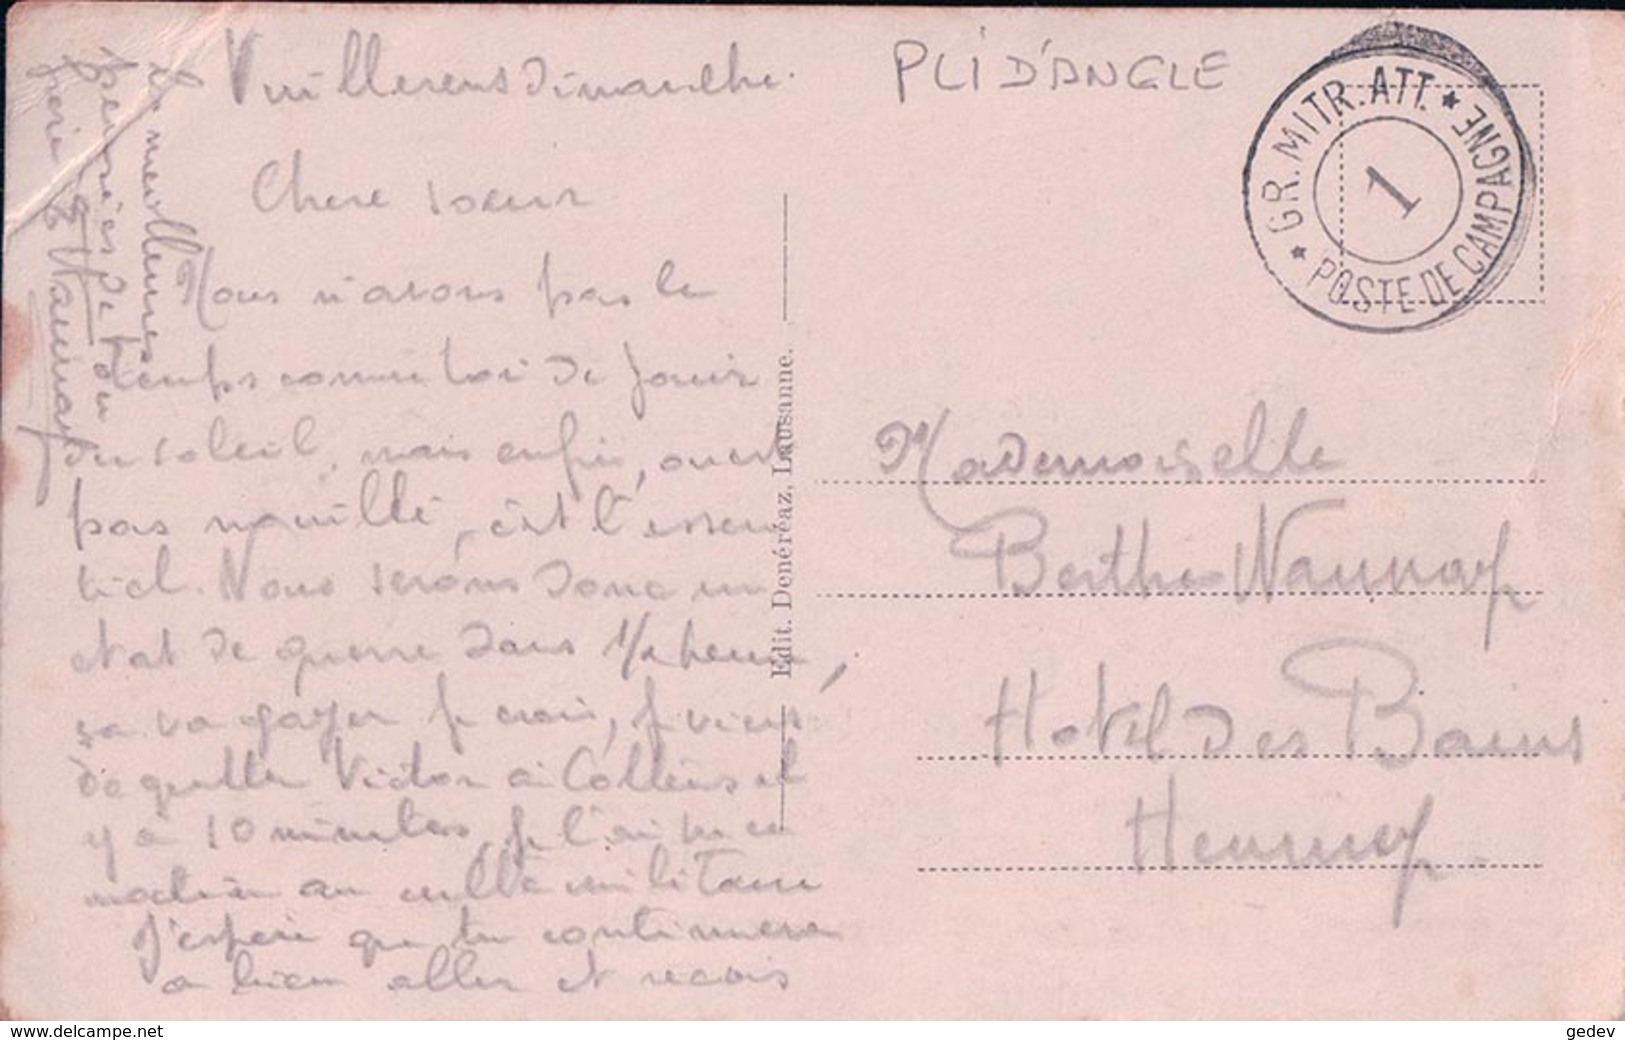 Vuillerens Dimanche.
Chere soeur
Nous n'avons pas le
temps comme toi de jouir
du soleil, mais enfin, on est
pas mouillé, c'est l'essen
tiel. Nous serons donc en
etat de guerre dans 1/2 heure,
ca va gazer je crois, je viens
de quitter Victor à Collens il
y a 10 minutes, je l'ai vu ce
matin au culte militaire
J'espère que tu continueras
a bien aller et reçois
les meilleures
pensées de ton
frère
PLI D'ANGLE
* GR. MITR. ATT. * POSTE DE CAMPAGNE
1
Edit. Denéréaz, Lausanne.
Mademoiselle
Berthe
Hotel des Bains
Henniez
www.delcampe.net
gedev